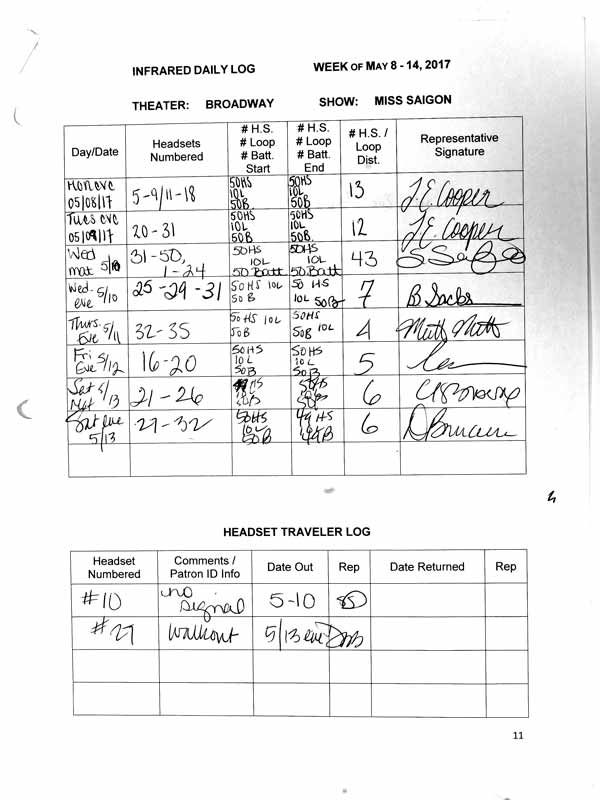 INFRARED DAILY LOG WEEK OF MAY 8 - 14, 2017
THEATER: BROADWAY SHOW: MISS SAIGON
Day/Date Headsets Numbered # H.S. # Loop # Batt. Start # H.S. # Loop # Batt. End # H.S. / Loop Dist. Representative Signature
Mon eve 05/08/17 5-9/11-18 50HS 10L 50B 50HS 10L 50B. 13 J.E. Cooper
Tues eve 05/09/17 20-31 50HS 10L 50B 50HS 10L 50B. 12 J.E. Cooper
Wed mat 5/10 31-50, 1-24 50HS 10L 50 Batt 50HS 10L 50 Batt 43
Wed. eve 5/10 25-29-31 50HS 10L 50B 50 HS 10L 50B 7 B Sacks
Thurs. Eve 5/11 32-35 50HS 10L 50B 50HS 50B 10L 4
Fri Eve 5/12 16-20 50HS 10L 50B 50HS 10L 50B 5
Sat 5/13 21-26 HS 10L 50B 10L 50B 6
Sat eve 5/13 27-32 50HS 10L 50B 49 HS 10L 49B 6
HEADSET TRAVELER LOG
Headset Numbered Comments / Patron ID Info Date Out Rep Date Returned Rep
#10 no signal 5-10
#27 walkout 5/13 eve
11